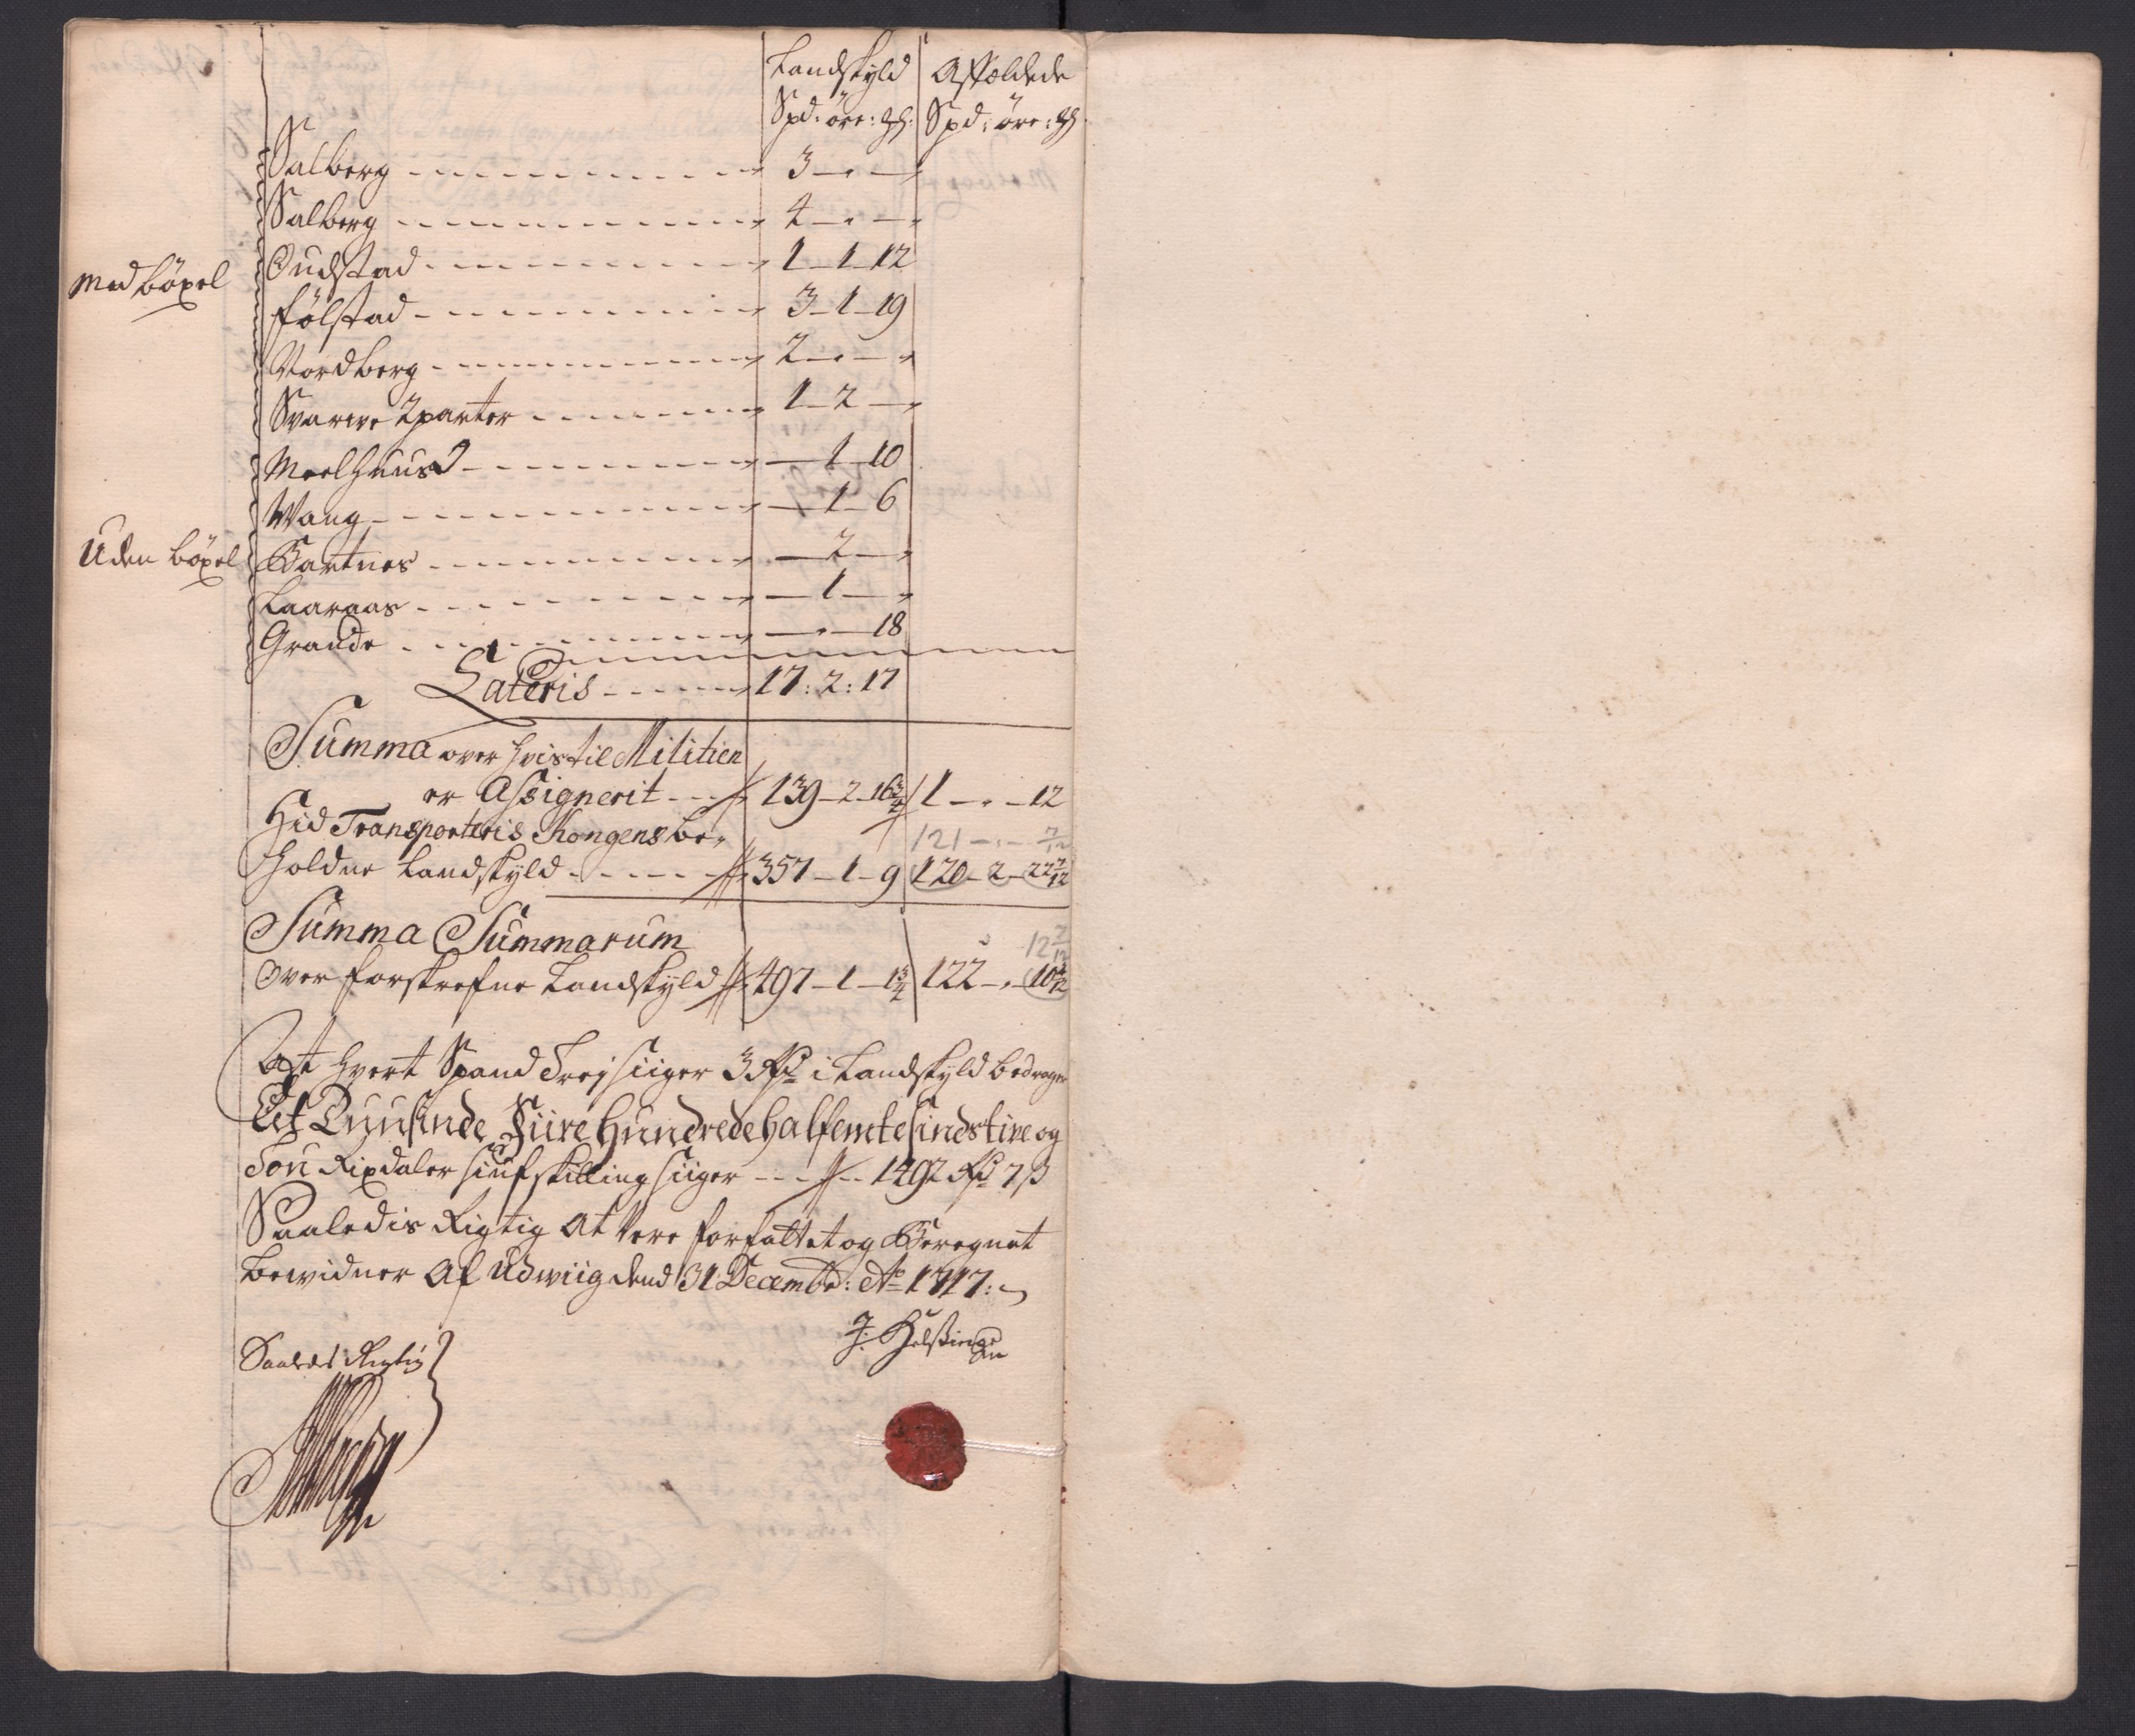 Landskyld Affældede
Spd: öre: ℳ: Spd: öre: ℳ
Salberg 3 - " - "
Salberg 4 - " - "
Med böxel
Oudstad 1 - 1 - 12
Fölstad 3 - 1 - 19
Nordberg 2 - " - "
Svarve 2 parter 1 - 2 - "
Meelhuus - 1 - 10
Wang - 1 - 6
Uden böxel
Bartnes - 2 - "
Laaraas - 1 - "
Grande - " - 18
Lateris 17 : 2 : 17
Summa over hvis til Militien
er Assignerit 139 - 2 - 16 3/4 1 - " - 12
Hid Transporteris Kongens be-
121 - " - 7/12
holdne Landskyld 357 - 1 - 9 120 - 2 - 22 7/12
Summa Summarum
12 7/12
Over forskrefne Landskyld 497 - 1 - 1 3/4 122 - " - 10 7/12
At hvert Spand Trej siiger 3 Rd i Landskyld bedrager
Eet Tuusinde Fiire Hundrede halfemtesindstive og
Tou Rixdaler siuf skilling siiger 1492 Rd 7 ß
Saaledis Rigtig At Vere forfattet og Beregnet
bevidner Af Udwiig dend 31 Decembr: Ao 1717:
Saaledes Rigtig